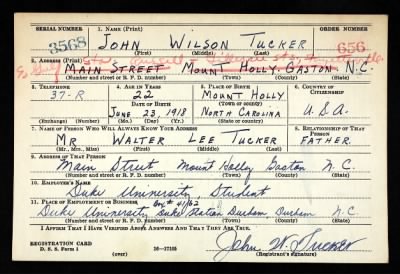 SERIAL NUMBER 1. NAME (Print) ORDER NUMBER
3568 JOHN WILSON TUCKER 656
(First) (Middle) (Last)
2. ADDRESS (Print)
MAIN STREET MOUNT HOLLY, GASTON N.C.
(Number and street or R. F. D. number) (Town) (County) (State)
3. TELEPHONE 4. AGE IN YEARS 5. PLACE OF BIRTH 6. COUNTRY OF CITIZENSHIP
37-R 22 MOUNT HOLLY
DATE OF BIRTH (Town or county)
JUNE 23, 1918 NORTH CAROLINA U.S.A.
(Exchange) (Number) (Mo.) (Day) (Yr.) (State or country)
7. NAME OF PERSON WHO WILL ALWAYS KNOW YOUR ADDRESS 8. RELATIONSHIP OF THAT PERSON
MR WALTER LEE TUCKER FATHER
(Mr., Mrs., Miss) (First) (Middle) (Last)
9. ADDRESS OF THAT PERSON
Main Street Mount Holly Gaston N. C.
(Number and street or R. F. D. number) (Town) (County) (State)
10. EMPLOYER'S NAME
Duke University, Student
11. PLACE OF EMPLOYMENT OR BUSINESS
Box # 4162
Duke University Duke Station Durham, Durham N.C.
(Number and street or R. F. D. number) (Town) (County) (State)
I AFFIRM THAT I HAVE VERIFIED ABOVE ANSWERS AND THAT THEY ARE TRUE.
REGISTRATION CARD
D. S. S. Form 1 16-17105 John W. Tucker
(Registrant's signature)